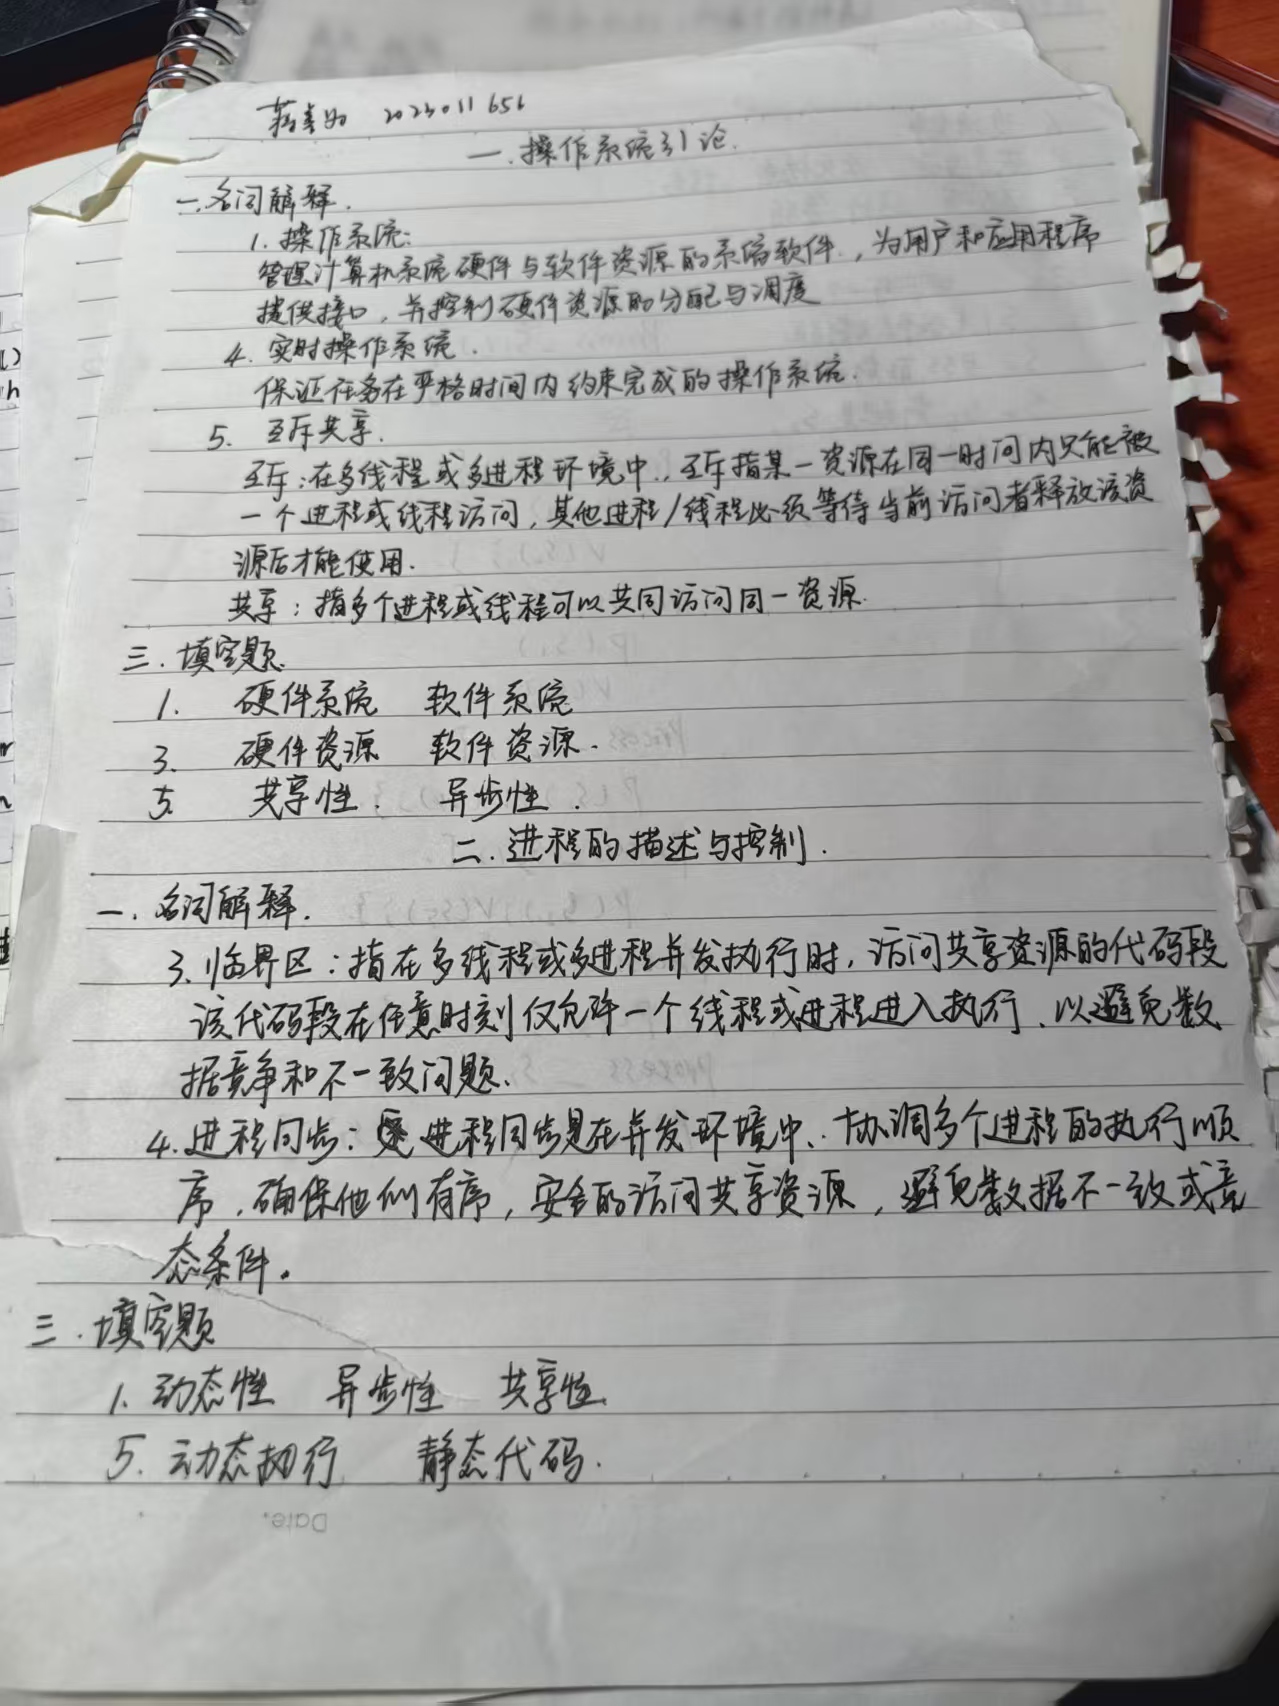 2023011656
一.操作系统引论.
一.名词解释.
1. 操作系统:
管理计算机系统硬件与软件资源的系统软件.,为用户和应用程序
提供接口,并控制硬件资源的分配与调度
4. 实时操作系统.
保证任务在严格时间内约束完成的操作系统.
5. 互斥共享.
互斥:在多线程或多进程环境中.,互斥指某一资源在同一时间内只能被
一个进程或线程访问,其他进程/线程必须等待当前访问者释放该资
源后才能使用.
共享:指多个进程或线程可以共同访问同一资源.
三.填空题.
1. 硬件系统 软件系统
3. 硬件资源 软件资源.
5 共享性. 异步性.
二.进程的描述与控制.
一.名词解释.
3.临界区:指在多线程或多进程并发执行时,访问共享资源的代码段
该代码段在任意时刻仅允许一个线程或进程进入执行、以避免数
据竞争和不一致问题.
4.进程同步: 进程同步是在并发环境中、协调多个进程的执行顺
序,确保他们有序,安全的访问共享资源,避免数据不一致或竞
态条件。
三.填空题
1. 动态性 异步性 共享性.
5. 动态执行 静态代码.
Date.